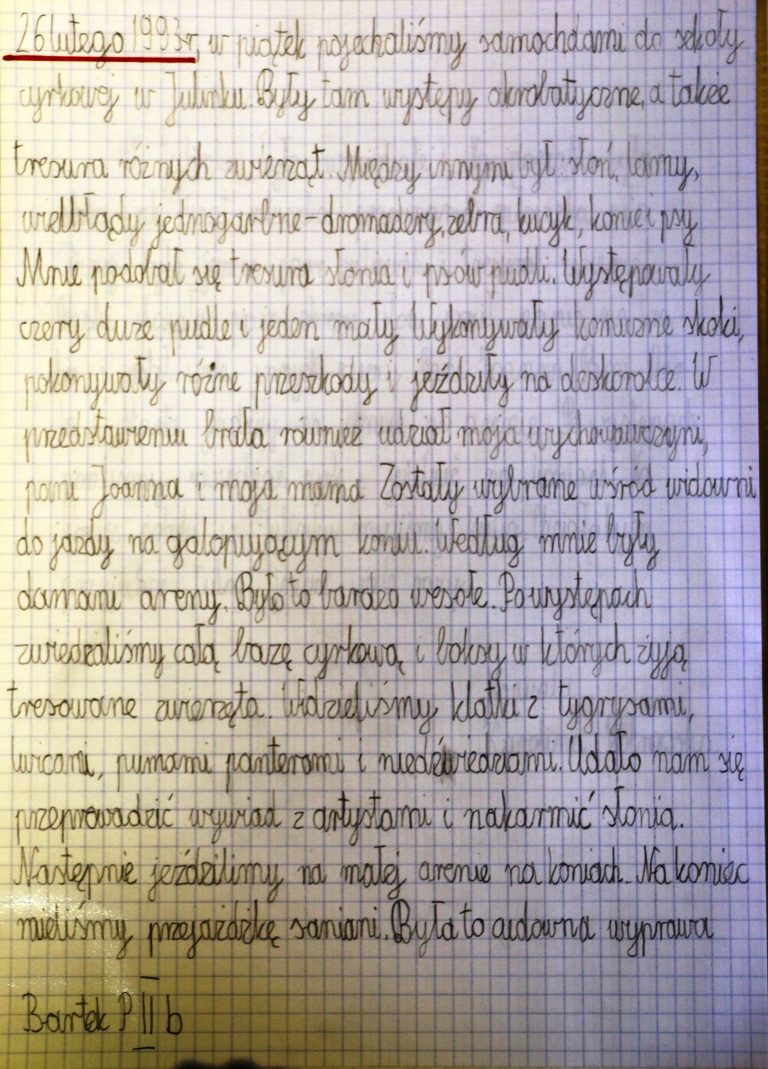 26 lutego 1993r, w piątek pojechaliśmy samochdami do szkoły
cyrkowej w Julinku. Były tam występy akrobatyczne, a także
tresura różnych zwierząt. Między innymi był: słoń, lamy,
wielbłądy jednogarbne-dromadery, zebra, kucyk, konie i psy
Mnie podobał się tresura słonia i psów pudli. Występowały
cztery duże pudle i jeden mały Wykonywały komiczne skoki,
pokonywały różne przeszkody i jeździły na deskorolce. W
przedstawieniu brała również udział moja wychowawczyni,
pani Joanna i moja mama Zostały wybrane wśród widowni
do jazdy na galopującym koniu. Według mnie były
damami areny. Było to bardzo wesołe. Po występach
zwiedzaliśmy całą bazę cyrkową i boksy w których żyją
tresowane zwierzęta. Widzieliśmy klatki z tygrysami,
lwicami, pumami panterami i niedźwiedziami. Udało nam się
przeprowadzić wywiad z artystami i nakarmić słonia.
Następnie jeździlimy na małej arenie na koniach. Na koniec
mieliśmy przejażdżkę saniani. Była to cudowna wyprawa
Bartek P II b